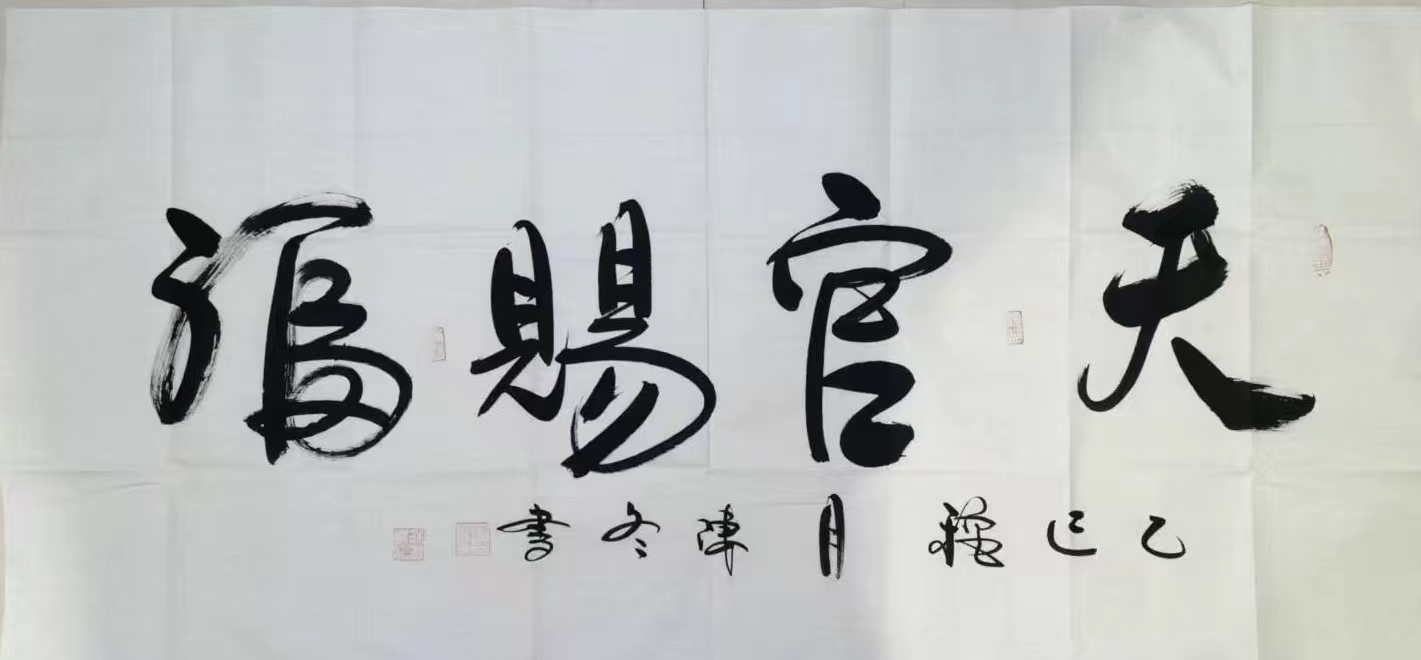 天官賜福
乙巳穐月陳冬書